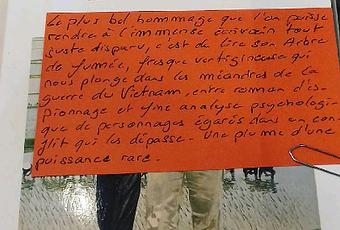 Le plus bel hommage que l'on puisse
rendre à l'immense écrivain tout
juste disparu, c'est de lire son Arbre
de fumée, fresque vertigineuse qui
nous plonge dans les méandres de la
guerre du Vietnam, entre roman d'es-
pionnage et fine analyse psychologi-
que de personnages égarés dans un con-
flit qui les dépasse. Une plume d'une
puissance rare.